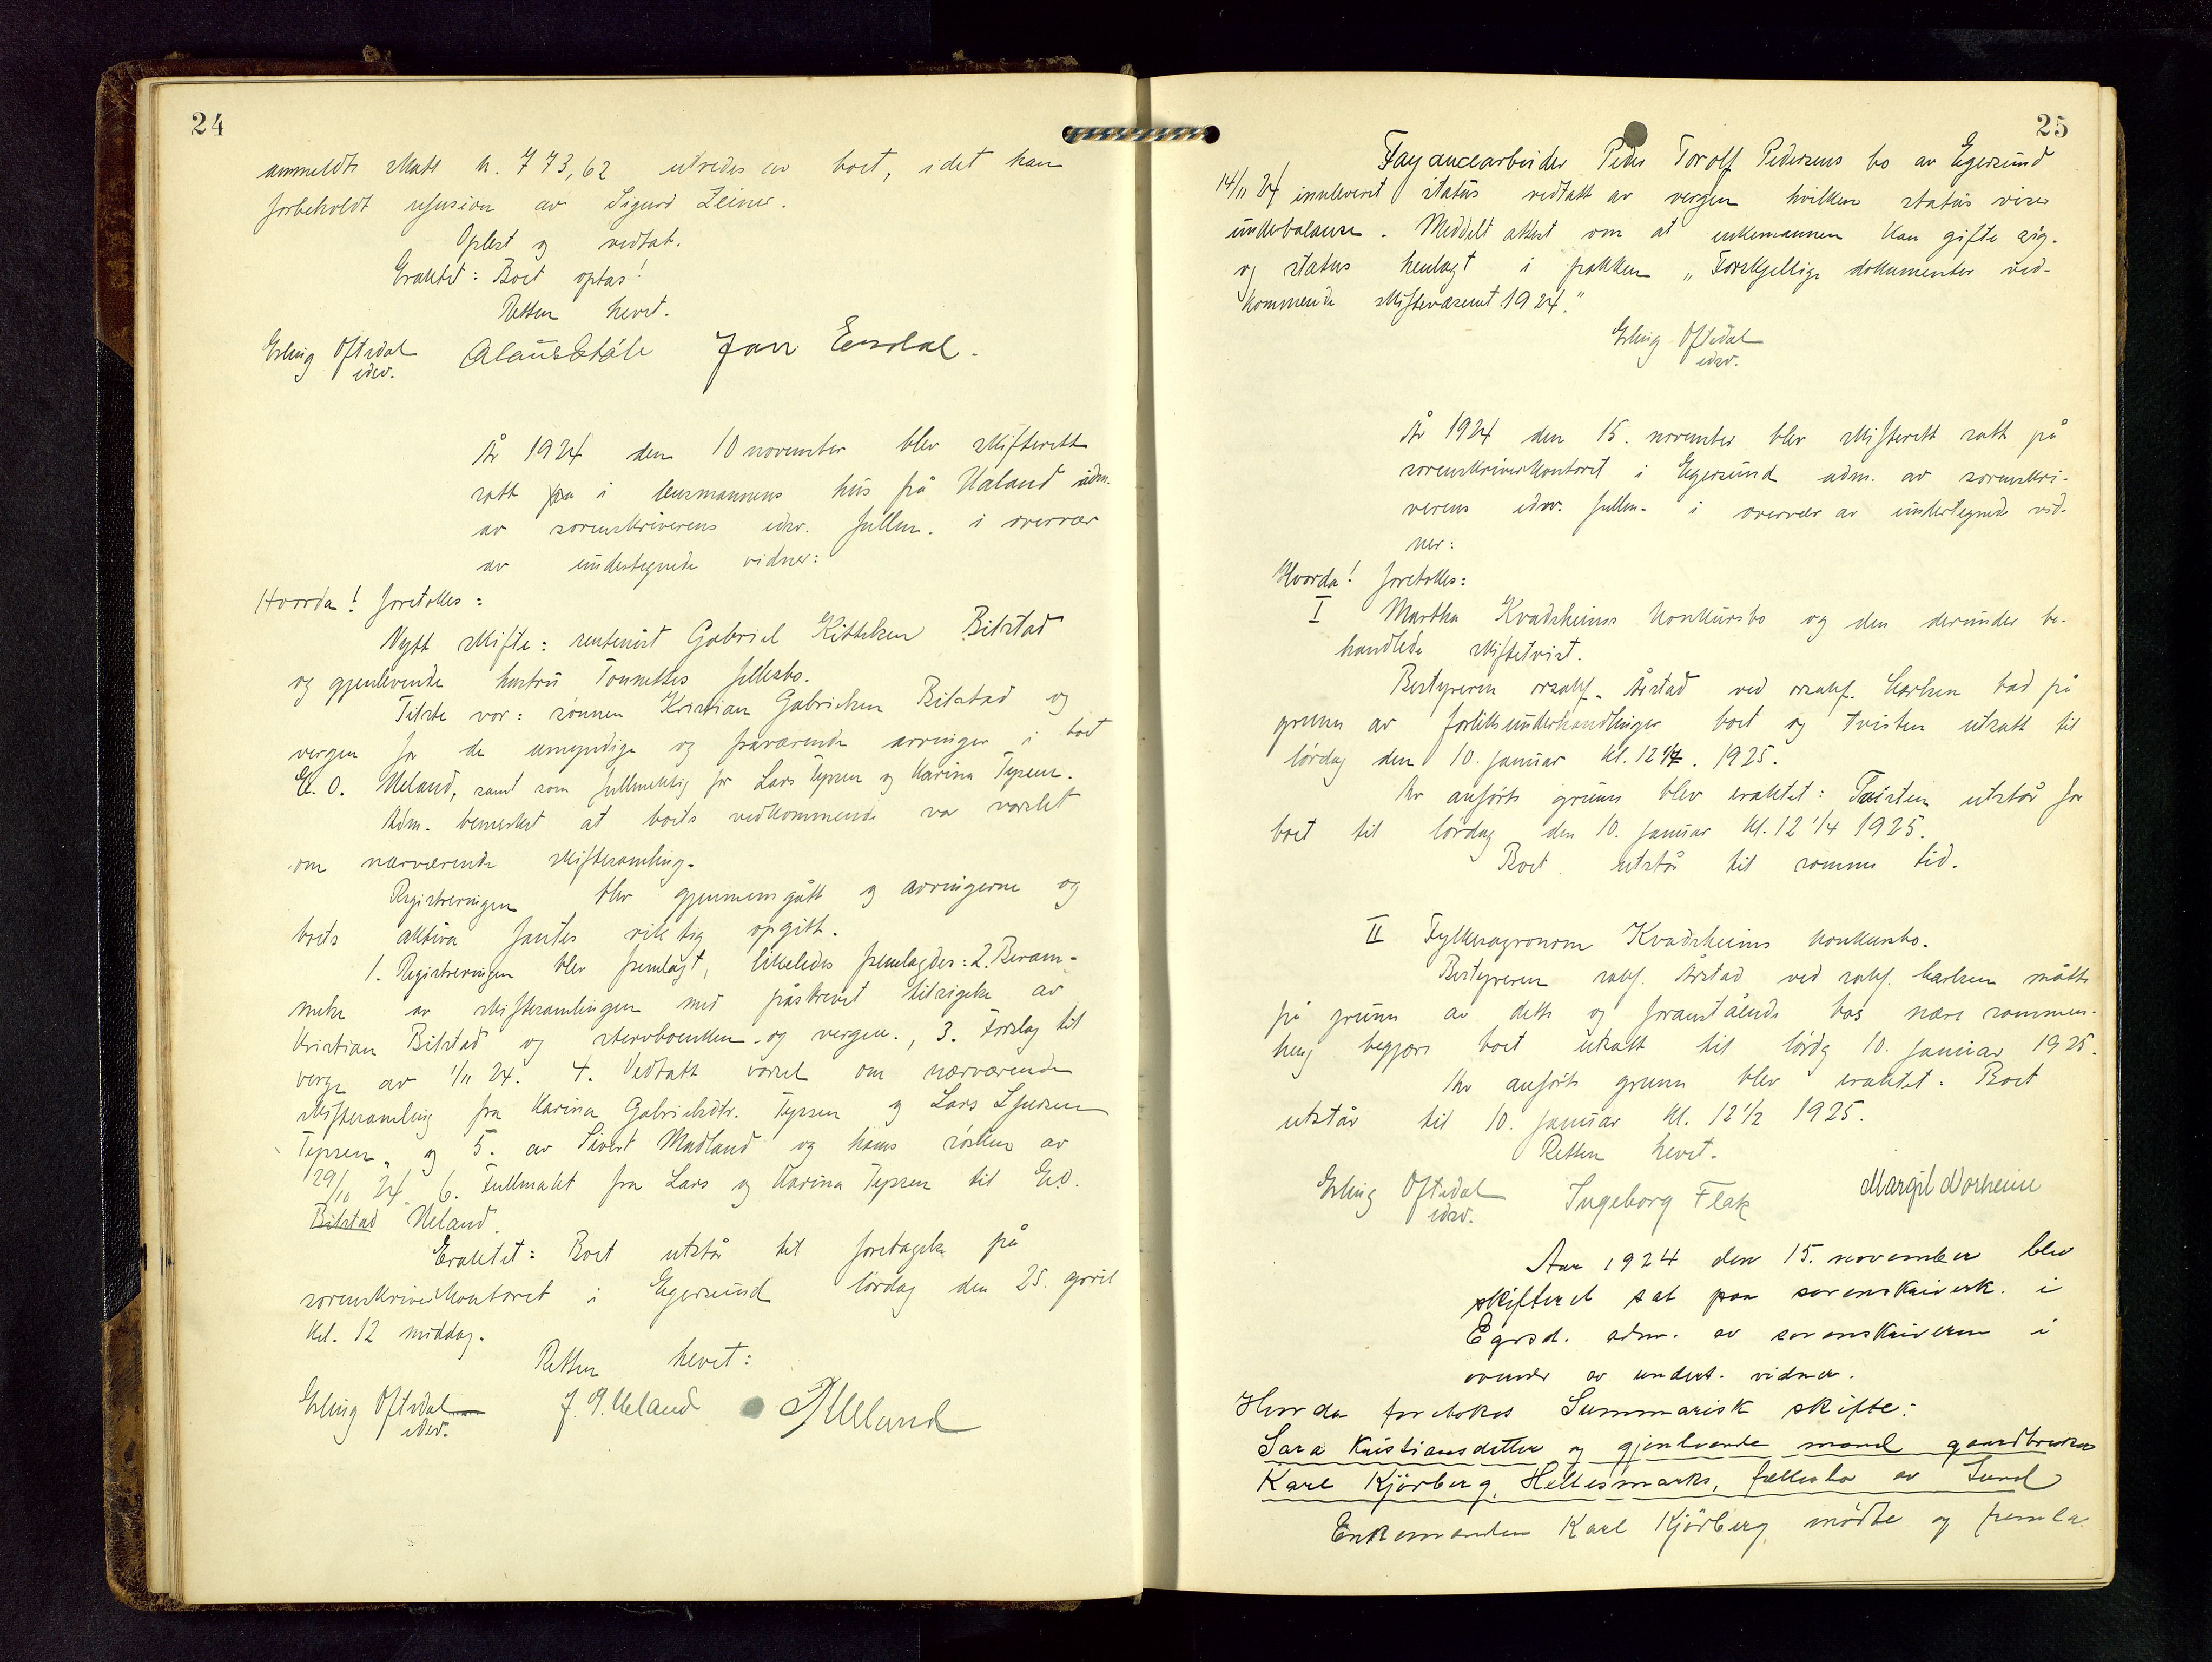 24
anmeldte skatt kr. 773,62 utredes av boet, idet han
forbeholdt refusion av Sigurd Zeiner.
Oplest og vedtat.
Eraktet: Boet optas!
Retten hevet.
Erling Oftedal Jan
edsv.
År 1924 den 10 november blev skifterett
satt på i lensmannens hus på Ualand adm.
av sorenskriverens edsv. fullm. i overvær
av undertegnede vidner:
Hvorda! foretokes:
Nytt skifte: rentenist Gabriel Kittelsen Bilstad
og gjenlevende hustru Tonnettes fellesbo.
Tilste var: sønnen Kristian Gabrielsen Bilstad og
vergen for de umyndige og fraværende arvinger i boet
E. O. Ueland, samt som fullmektig for Lars Tepsen og Karina Tepsen.
Adm. bemerket at boets vedkommende var varslet
om nærværende skiftesamling.
Registreringen blev gjennemgått og arvingerne og
boets aktiva fantes riktig opgitt.
1. Registreringen blev fremlagt, likeledes fremlagdes: 2. Beram-
melse av skiftesamlingen med påskrevet tilsigelse av
Kristian Bilstad og stervboenken og vergen., 3. Forslag til
verge av 1/11 24. 4. Vedtatt varsel om nærværende
skiftesamling fra Karina Gabrielsdtr. Tepsen og Lars
Tepsen, og 5. av Sivert Madland og hans søsken av
29/10 24. 6. Fullmakt fra Lars og Karina Tepsen til E.O.
Bilstad Ueland.
Eraktet: Boet utstår til foretagelse på
sorenskriverkontoret i Egersund lørdag den 25. april
kl. 12 middag.
Retten hevet:
Erling Oftedal J. G. Ueland Ueland
edsv.
25
Fayancearbeider Peder Torolf Pedersens bo av Egersund
14/11 24 innleveret status vedtatt av vergen hvilken status viser
underbalanse. Meddelt attest om at enkemannen kan gifte sig.
og status henlagt i pakken "Forskjellige dokumenter ved-
kommende skiftevæsenet 1924."
Erling Oftedal
edsv.
År 1924 den 15. november blev skifterett satt på
sorenskriverkontoret i Egersund adm. av sorenskri-
verens edsv. fullm. i overvær av undertegnede vid-
ner:
Hvorda! foretokes:
I Martha Kvadsheims konkursbo og den derunder be-
handlede skiftetvist.
Bestyreren orsakf. Årstad ved orsakf. Carlsen bad på
grunn av forliksunderhandlinger boet og tvisten utsatt til
lørdag den 10. januar kl. 12 1/4. 1925.
Av anførte grunn blev eraktet: Tvisten utstår for
boet til lørdag den 10. januar kl. 12 1/4 1925.
Boet utstår til samme tid.
II Fylkesagronom Kvadsheims konkursbo.
Bestyreren sakf. Årstad ved sakf. Carlsen måtte
på grunn av dette og foranstående bos nære sammen-
heng begjære boet utsatt til lørdag 10. januar 1925.
Av anførte grunn blev eraktet: Boet
utstår til 10. januar kl. 12 1/2 1925.
Retten hevet.
Erling Oftedal Ingeborg Flak Margit Norheim
edsv.
Aar 1924 den 15. november blev
skifteret sat paa sorenskriverk. i
Egrsd. adm. av sorenskriveren i
overvær av undert. vidner.
Hvorda foretokes Summarisk skifte:
Sara Kristiansdatter og gjenlevende mand gaardbruker
Karl Kjörberg, Hellesmarks, fællesbo av Lund
Enkemanden Karl Kjörberg mødte og fremla-